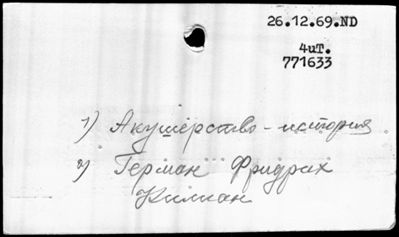 26.12.69.ND
4иТ.
771633
1) Акушерство - история
2) Герман Фридрих
Килиан